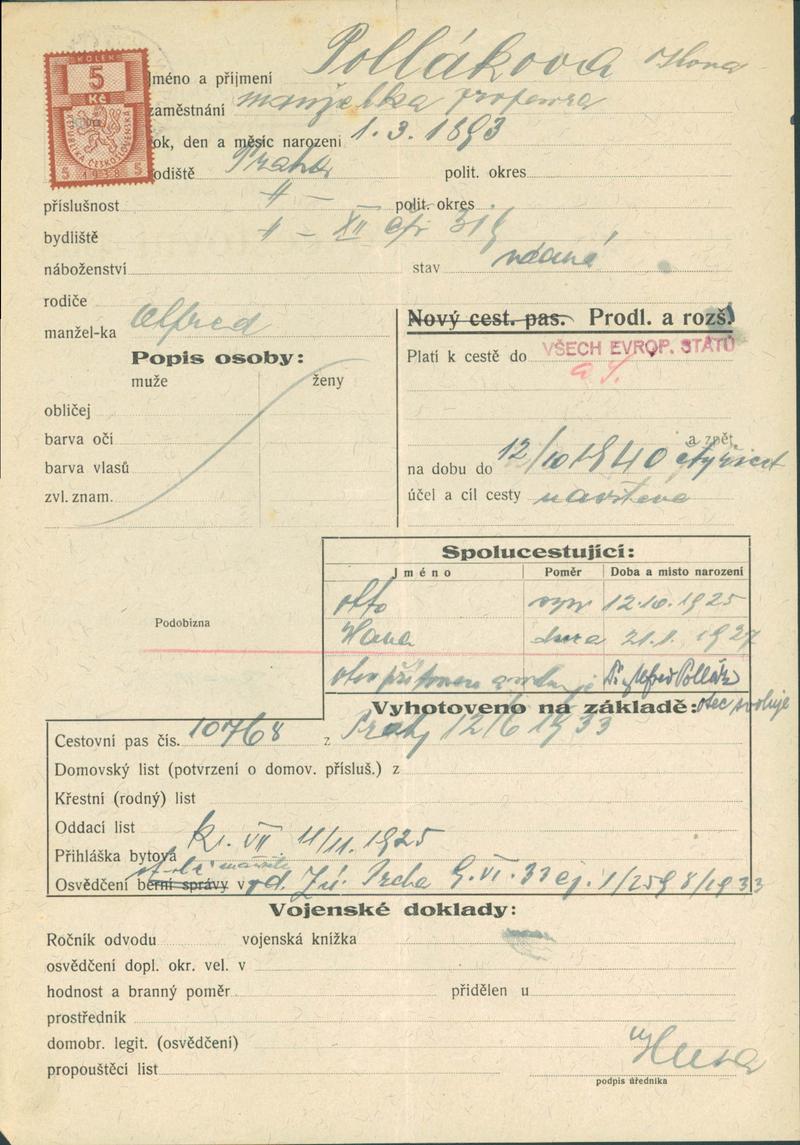 KOLEK
5
Kč
REPUBLIKA ČESKOSLOVENSKÁ
5 1938 5
Jméno a příjmení Pollákova Ilona
zaměstnání manželka profesora
ok, den a měsíc narození 1. 3. 1893
odiště Praha polit. okres
příslušnost -"- polit. okres
bydliště -"- XII čp 319
náboženství stav vdaná
rodiče
manžel-ka Alfred
Nový cest. pas. Prodl. a rozš.
Popis osoby:
Platí k cestě do VŠECH EVROP. STÁTŮ
muže ženy
obličej
barva očí a zpět.
barva vlasů na dobu do 12/10 1940 čtyřicet
zvl. znam. účel a cíl cesty návštěva
Spolucestující:
Jméno Poměr Doba a místo narození
Otto syn 12.10.1925
Hana dcera 21.1. 1927
Podobizna
otec přítomen Alfred Pollák
otec svoluje
Vyhotoveno na základě:
Cestovní pas čís. 10768 z Prahy 12/6 1933
Domovský list (potvrzení o domov. přísluš.) z
Křestní (rodný) list
Oddací list
Přihláška bytová Kr. VII 11/11. 1925
Osvědčení berní správy v Praha 9. VI. 33 čj. 1/2598/1933
Vojenské doklady:
Ročník odvodu vojenská knížka
osvědčení dopl. okr. vel. v
hodnost a branný poměr přidělen u
prostředník
domobr. legit. (osvědčení)
propouštěcí list
podpis úředníka